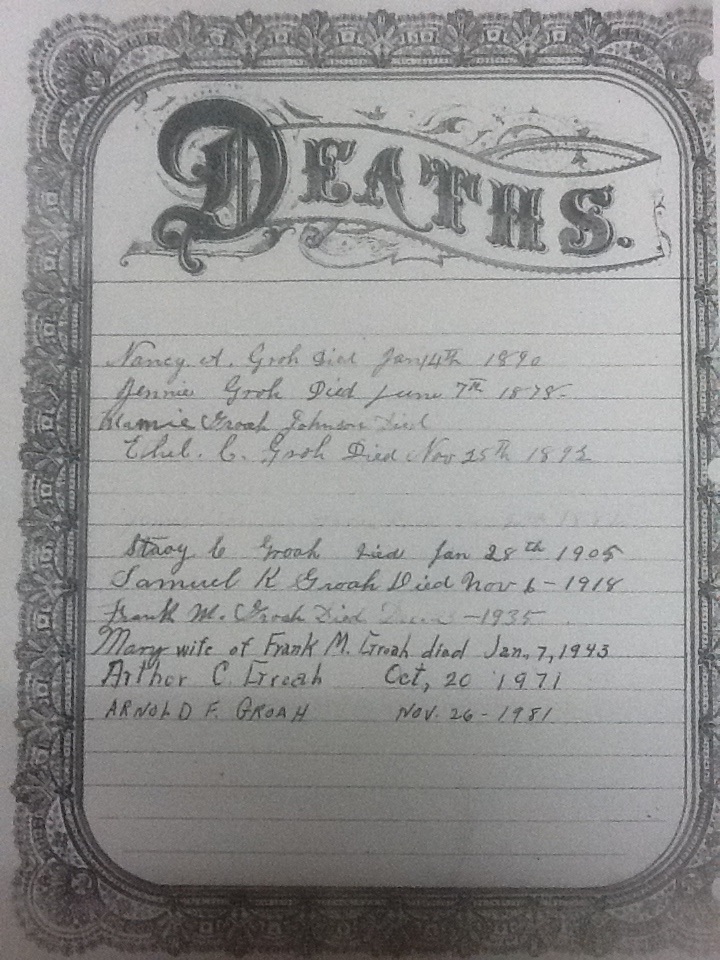 DEATHS.
Nancy A. Groh Died Jan 14th 1890
Jennie Groh Died June 7th 1878-
Mamie Groah Johnson Died
Ethel. C. Groh Died Nov 25th 1892
Stacy C Groah Died Jan 28th 1905
Samuel K Groah Died Nov 6-1918
Frank M. Groah Died -1935
Mary wife of Frank M. Groah died Jan. 7, 1943
Arthor C. Groah Oct, 20 1971
ARNOLD F. GROAH NOV. 26-1981